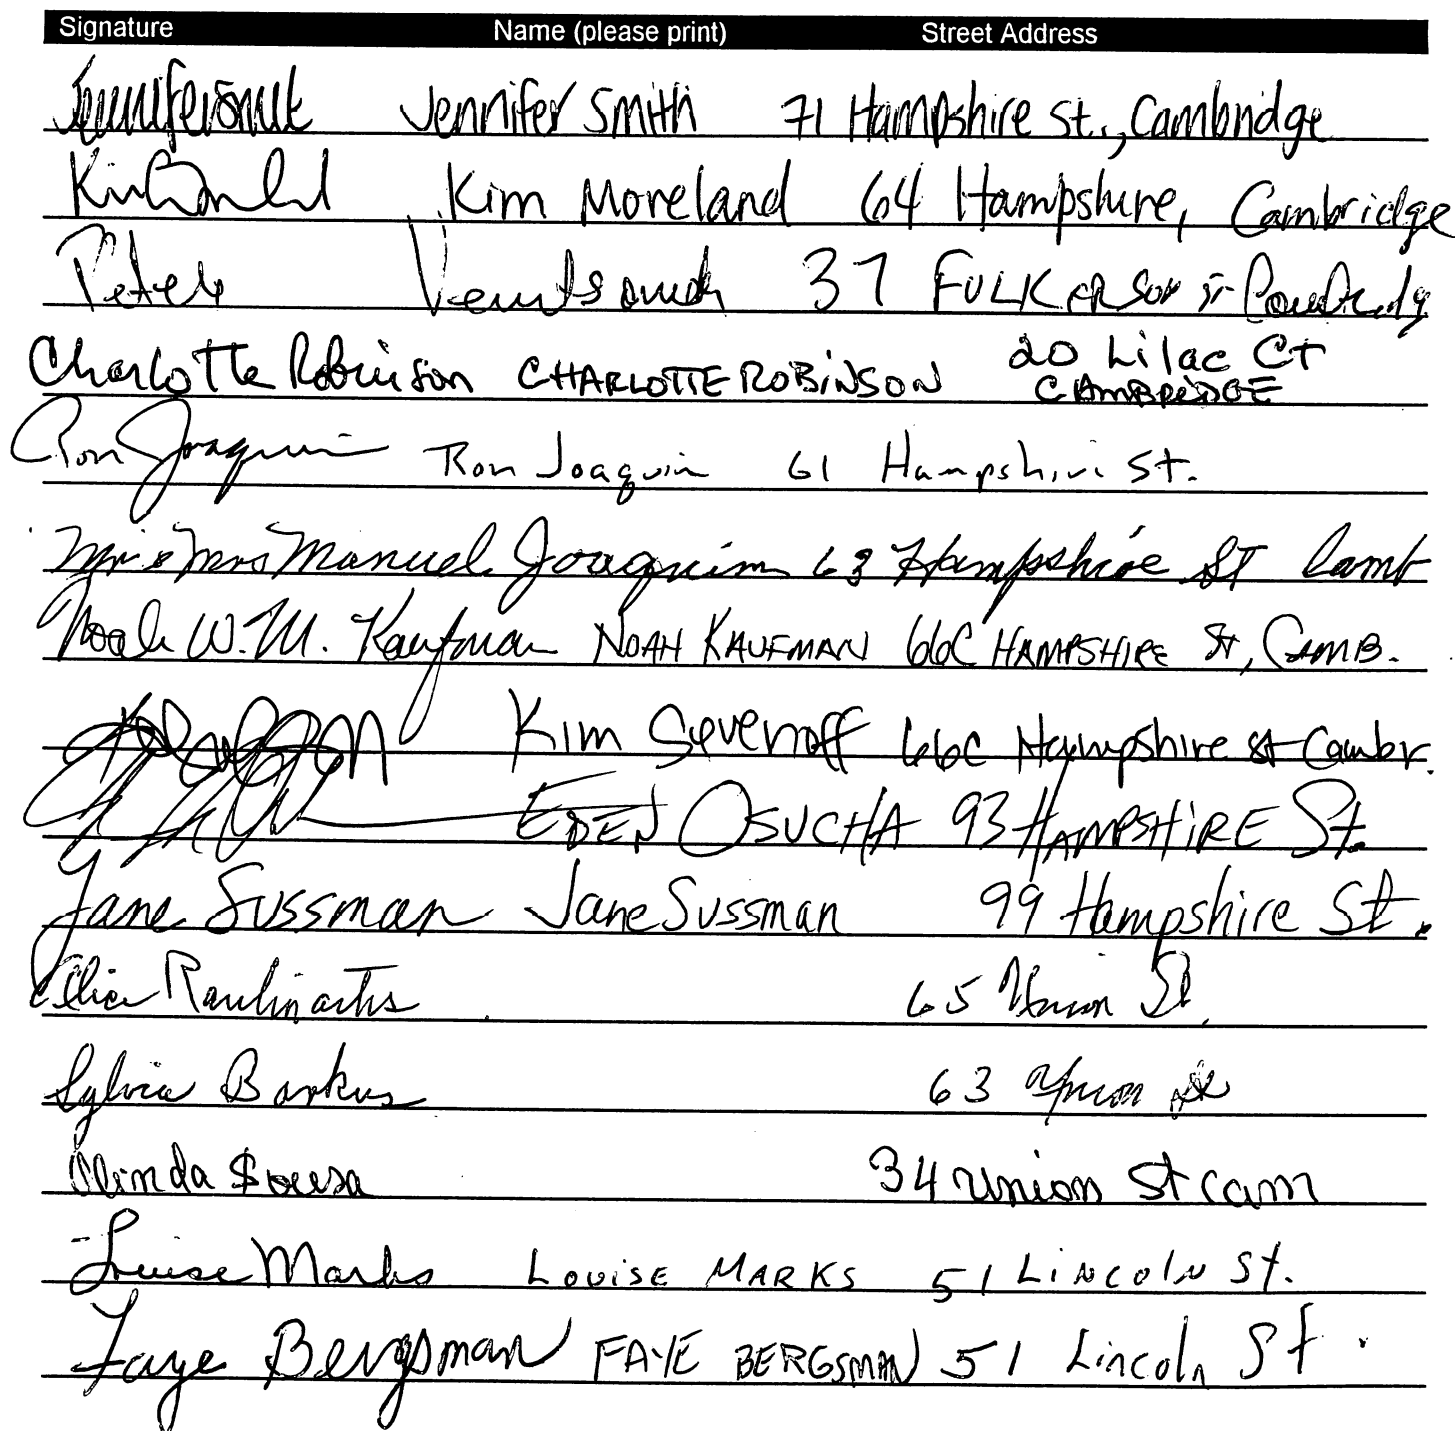 Signature Name (please print) Street Address
Jennifer Smith Jennifer Smith 71 Hampshire St., Cambridge
Kim Moreland 64 Hampshire, Cambridge
Peter 37 FULKERSON St
Charlotte Robinson CHARLOTTE ROBINSON 20 Lilac CT
CAMBRIDGE
Ron Joaquin Ron Joaquin 61 Hampshire St.
Mr & Mrs Manuel Joaquim 63 Hampshire ST Camb
Noah W. M. Kaufman NOAH KAUFMAN 66C HAMPSHIRE St, CAMB.
Kim Severnoff 66C Hampshire St Cambr.
EDEN OSUCHA 93 HAMPSHIRE St.
Jane Sussman Jane Sussman 99 Hampshire St.
65 Union St.
Sylvia Barkus 63 Union St
Olinda Sousa 34 Union St cam
Louise Marks LOUISE MARKS 51 LINCOLN St.
Faye Bergsman FAYE BERGSMAN 51 Lincoln St.